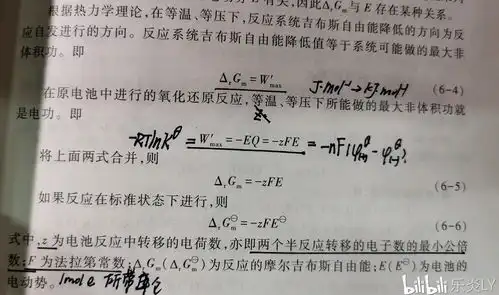 有关,因此ΔrGm与 E 存在某种关系。
根据热力学理论,在等温、等压下,反应系统吉布斯自由能降低的方向为反
应自发进行的方向。反应系统吉布斯自由能降低值等于系统可能做的最大非
体积功。即
ΔrGm = W′max J·mol→kJ·mol (6-4)
在原电池中进行的氧化还原反应,等温、等压下所能做的最大非体积功就
是电功。即
-RTlnK⊖ = W′max = -EQ = -zFE = -nF(φ(+)⊖ - φ(-)⊖)
将上面两式合并,则
ΔrGm = -zFE (6-5)
如果反应在标准状态下进行,则
ΔrGm⊖ = -zFE⊖ (6-6)
式中,z 为电池反应中转移的电荷数,亦即两个半反应转移的电子数的最小公倍
数;F 为法拉第常数;ΔrGm(ΔrGm⊖)为反应的摩尔吉布斯自由能;E(E⊖)为电池的
电动势。1mol e 所带库仑
bilibili 乐炎LY